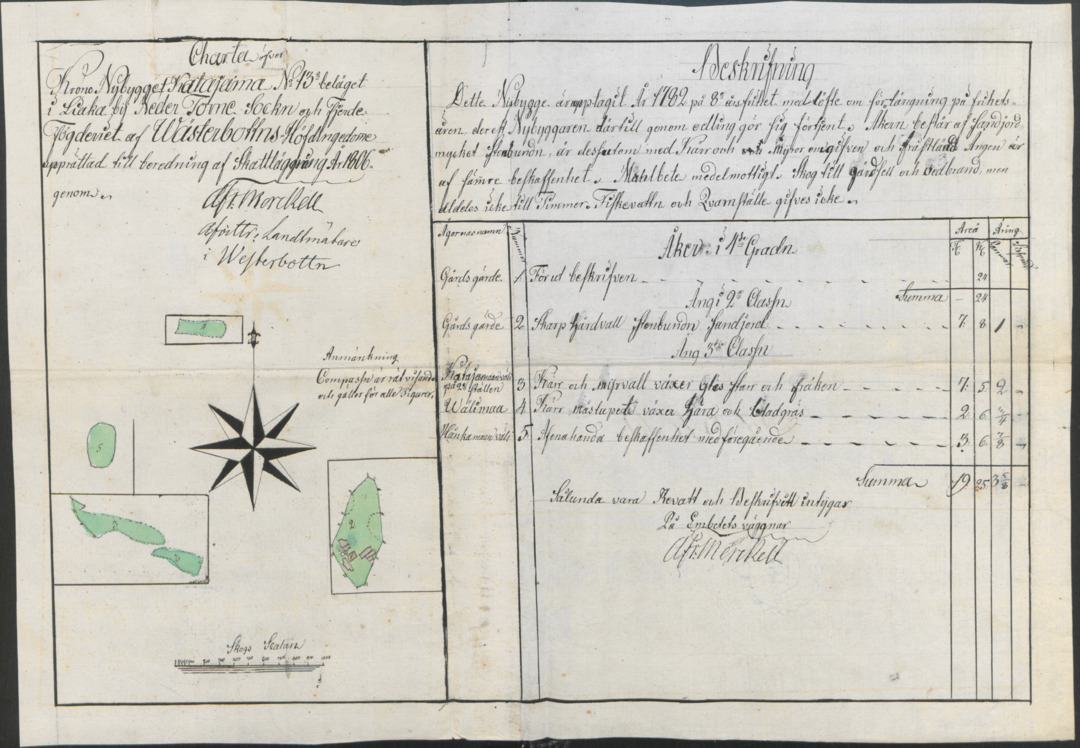 Charta öfver
Krono Nybygget Katajama No 13 beläget
i Liaka by Neder Torne Sokn och Fierde
Fögderiet af Wästerbottns Höfdingedöme
upprättad till beredning af Skattläggning År 1806.
genom
Afr. Morckell
Afvittr: Landtmätare
i Westerbottn
Anmärckning
Compassen är rätvisande
och gäller för alla Figurer.
1
5
2
Skogs Scalan
Beskrifning
Dette Nybygge är upptagit År 1782 på 8 års frihet med löfte om förlängning på frihets-
åren der ef Nybyggaren därtill genom odling gör sig förtjent. Åkern består af Sandjord
mycket stenbundn, är dessutom med Kärr och Myror omgifven och frostländ Ängen är
af sämre beskaffenhet. Mulbete medelmottigt. Skog till gärdsell och vedbrand, men
aldeles icke till Timmer. Fiskevattn och Qvarnställe gifves icke.
Ägornas namn Nummer Areä Äring
Åker: i 4de Gradn
Gårds gärde. 1 Förut beskrifven 24
Summa — 24
Äng i 2a Classn
Gårds gärde 2 Skarp Hårdvall Stenbundn Sandjord 7. 8 1
Äng 3die Classn
3 Kärr och myrvall växer Gles starr och fräken 7. 5 2
Wälimaa 4 Kärr växer och Bladgräs 2 6 3/4
5 beskaffenhet med föregående 3. 6 7/8
Summa 19 25 3 5/8
Sålunda vara Refvatt och Beskrifvitt intygar
På Embetets vägnar
Afr. Morckell